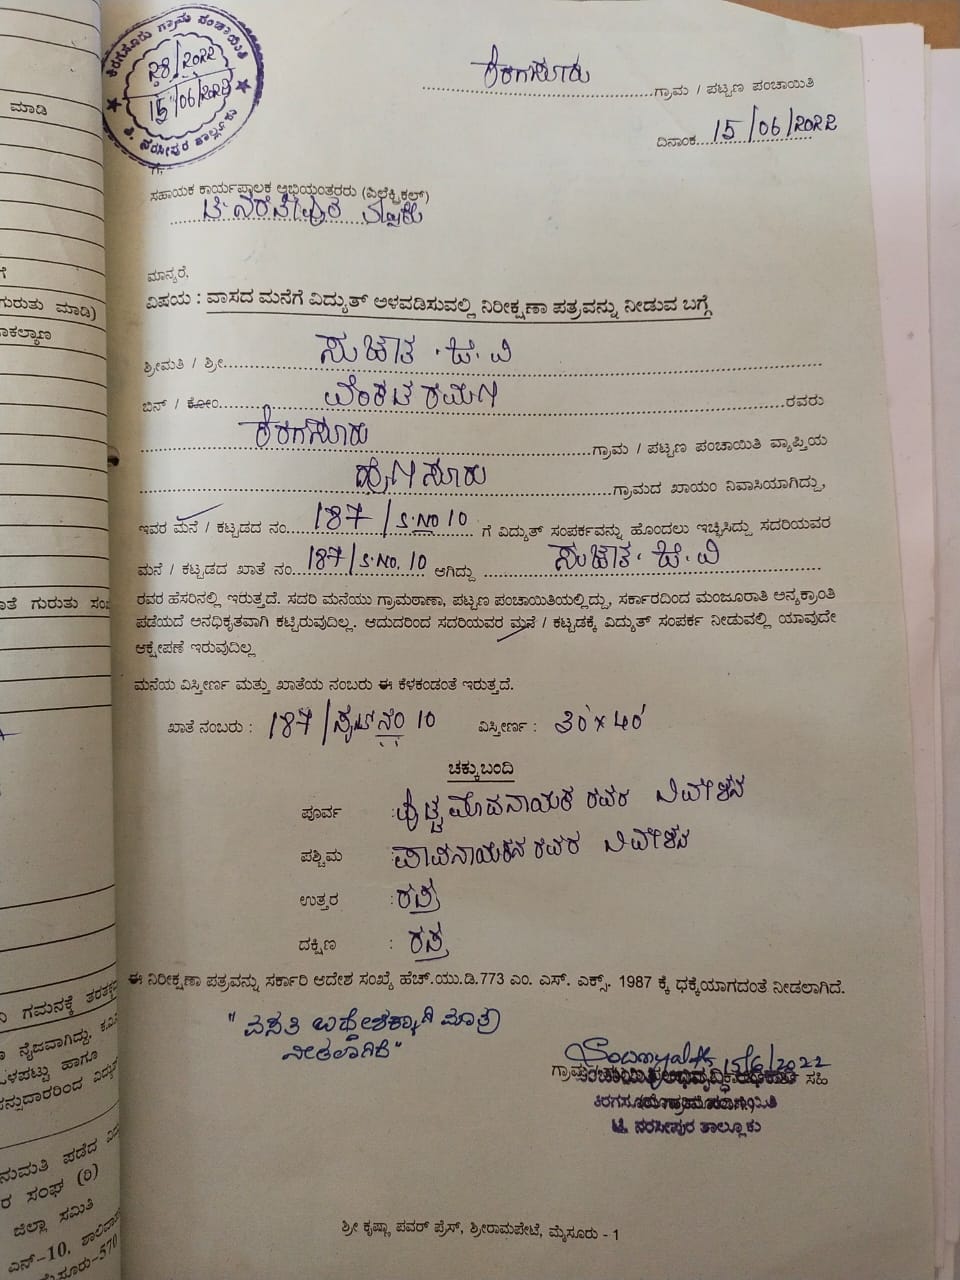 ಕಿರಗಸೂರು ಗ್ರಾಮ ಪಂಚಾಯಿತಿ
28/2022
15/06/2022
ತಿ. ನರಸೀಪುರ ತಾಲ್ಲೂಕು
ಕಿರಗಸೂರು ಗ್ರಾಮ / ಪಟ್ಟಣ ಪಂಚಾಯಿತಿ
ದಿನಾಂಕ 15/06/2022
ಸಹಾಯಕ ಕಾರ್ಯಪಾಲಕ ಅಭಿಯಂತರರು (ಎಲೆಕ್ಟ್ರಿಕಲ್)
ಮಾನ್ಯರೆ,
ವಿಷಯ : ವಾಸದ ಮನೆಗೆ ವಿದ್ಯುತ್ ಅಳವಡಿಸುವಲ್ಲಿ ನಿರೀಕ್ಷಣಾ ಪತ್ರವನ್ನು ನೀಡುವ ಬಗ್ಗೆ
ಶ್ರೀಮತಿ / ಶ್ರೀ ಸುಜಾತ . ಜಿ . ವಿ
ಬಿನ್ / ಕೋಂ ವೆಂಕಟರಮಣ ರವರು
ಕಿರಗಸೂರು ಗ್ರಾಮ / ಪಟ್ಟಣ ಪಂಚಾಯಿತಿ ವ್ಯಾಪ್ತಿಯ
ಗ್ರಾಮದ ಖಾಯಂ ನಿವಾಸಿಯಾಗಿದ್ದು,
ಇವರ ಮನೆ / ಕಟ್ಟಡದ ನಂ. 187/S.NO 10 ಗೆ ವಿದ್ಯುತ್ ಸಂಪರ್ಕವನ್ನು ಹೊಂದಲು ಇಚ್ಛಿಸಿದ್ದು ಸದರಿಯವರ
ಮನೆ / ಕಟ್ಟಡದ ಖಾತೆ ನಂ. 187/S.No. 10 ಆಗಿದ್ದು ಸುಜಾತ . ಜಿ . ವಿ
ರವರ ಹೆಸರಿನಲ್ಲಿ ಇರುತ್ತದೆ. ಸದರಿ ಮನೆಯು ಗ್ರಾಮಠಾಣಾ, ಪಟ್ಟಣ ಪಂಚಾಯಿತಿಯಲ್ಲಿದ್ದು, ಸರ್ಕಾರದಿಂದ ಮಂಜೂರಾತಿ ಅನ್ಯಕ್ರಾಂತಿ
ಪಡೆಯದೆ ಅನಧಿಕೃತವಾಗಿ ಕಟ್ಟಿರುವುದಿಲ್ಲ. ಆದುದರಿಂದ ಸದರಿಯವರ ಮನೆ / ಕಟ್ಟಡಕ್ಕೆ ವಿದ್ಯುತ್ ಸಂಪರ್ಕ ನೀಡುವಲ್ಲಿ ಯಾವುದೇ
ಆಕ್ಷೇಪಣೆ ಇರುವುದಿಲ್ಲ
ಮನೆಯ ವಿಸ್ತೀರ್ಣ ಮತ್ತು ಖಾತೆಯ ನಂಬರು ಈ ಕೆಳಕಂಡಂತೆ ಇರುತ್ತದೆ.
ಖಾತೆ ನಂಬರು : 187/ಸೈಟ್ ನಂ 10 ವಿಸ್ತೀರ್ಣ : ೩೦' x ೪೦'
ಚಕ್ಕುಬಂದಿ
ಪೂರ್ವ : ರವರ ನಿವೇಶನ
ಪಶ್ಚಿಮ : ರವರ ನಿವೇಶನ
ಉತ್ತರ : ರಸ್ತೆ
ದಕ್ಷಿಣ : ರಸ್ತೆ
ಈ ನಿರೀಕ್ಷಣಾ ಪತ್ರವನ್ನು ಸರ್ಕಾರಿ ಆದೇಶ ಸಂಖ್ಯೆ ಹೆಚ್.ಯು.ಡಿ.773 ಎಂ. ಎಸ್. ಎಕ್ಸ್. 1987 ಕ್ಕೆ ಧಕ್ಕೆಯಾಗದಂತೆ ನೀಡಲಾಗಿದೆ.
"ವಸತಿ ಉದ್ದೇಶಕ್ಕಾಗಿ ಮಾತ್ರ
ನೀಡಲಾಗಿದೆ"
15/6/2022
ಪಂಚಾಯಿತಿ ಅಭಿವೃದ್ಧಿ ಅಧಿಕಾರಿ ಸಹಿ
ತಿ. ನರಸೀಪುರ ತಾಲ್ಲೂಕು
ಶ್ರೀ ಕೃಷ್ಣಾ ಪವರ್ ಪ್ರೆಸ್, ಶ್ರೀರಾಮಪೇಟೆ, ಮೈಸೂರು - 1